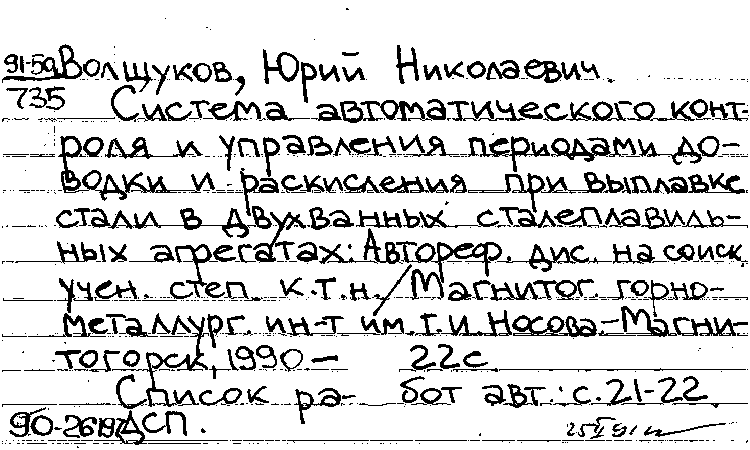 91-5a Волщуков, Юрий Николаевич.
735 Система автоматического конт-
роля и управления периодами до-
водки и раскисления при выплавке
стали в двухванных сталеплавиль-
ных агрегатах: Автореф. дис. на соиск.
учен. степ. к.т.н./Магнитог. горно-
металлург. ин-т им. Г.И. Носова.-Магни-
тогорск, 1990— 22с.
Список ра- бот авт.: с.21-22.
ДСП.